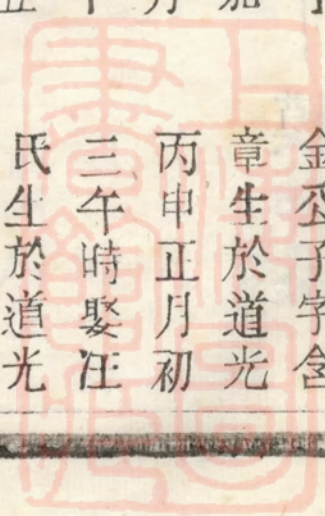 金公子字含
章生於道光
丙申正月初
三午時娶汪
氏生於道光